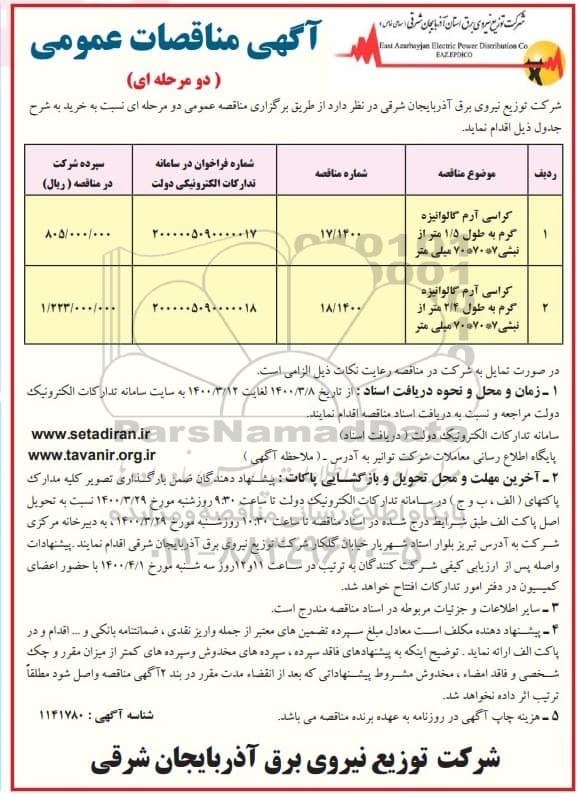 شرکت توزیع نیروی برق استان آذربایجان شرقی (سهامی خاص)
East Azarbayjan Electric Power Distribution Co
EAZ.EPDICO
آگهی مناقصات عمومی
( دو مرحله ای)
شرکت توزیع نیروی برق آذربایجان شرقی در نظر دارد از طریق برگزاری مناقصه عمومی دو مرحله ای نسبت به خرید به شرح
جدول ذیل اقدام نماید.
ردیف	موضوع مناقصه	شماره مناقصه	شماره فراخوان در سامانه تدارکات الکترونیکی دولت	سپرده شرکت در مناقصه ( ریال)
۱	کراسی آرم گالوانیزه گرم به طول ۱/۵ متر از نبشی۷*۷۰*۷۰ میلی متر	۱۷/۱۴۰۰	۲۰۰۰۰۰۵۰۹۰۰۰۰۰۱۷	۸۰۵/۰۰۰/۰۰۰
۲	کراسی آرم گالوانیزه گرم به طول ۲/۴ متر از نبشی۷*۷۰*۷۰ میلی متر	۱۸/۱۴۰۰	۲۰۰۰۰۰۵۰۹۰۰۰۰۰۱۸	۱/۲۲۳/۰۰۰/۰۰۰
در صورت تمایل به شرکت در مناقصه رعایت نکات ذیل الزامی است.
۱ ـ زمان و محل و نحوه دریافت اسناد : از تاریخ ۱۴۰۰/۳/۸ لغایت ۱۴۰۰/۳/۱۲ به سایت سامانه تدارکات الکترونیک
دولت مراجعه و نسبت به دریافت اسناد مناقصه اقدام نمایند.
سامانه تدارکات الکترونیک دولت ( دریافت اسناد) www.setadiran.ir
پایگاه اطلاع رسانی معاملات شرکت توانیر به آدرس - ( ملاحظه آگهی ) www.tavanir.org.ir
۲ ـ آخرین مهلت و محل تحویل و بازگشایی پاکات : پیشنهاد دهندگان ضمن بارگذاری تصویر کلیه مدارک
پاکتهای ( الف ، ب و ج ) در سامانه تدارکات الکترونیک دولت تا ساعت ۹:۳۰ روزشنبه مورخ ۱۴۰۰/۳/۲۹ نسبت به تحویل
اصل پاکت الف طبق شرایط درج شده در اسناد مناقصه تا ساعت ۱۰:۳۰ روزشنبه مورخ ۱۴۰۰/۳/۲۹، به دبیرخانه مرکزی
شرکت به آدرس تبریز بلوار استاد شهریار خیابان گلکار شرکت توزیع نیروی برق آذربایجان شرقی اقدام نمایند .پیشنهادات
واصله پس از ارزیابی کیفی شرکت کنندگان به ترتیب در ساعت ۱۱و۱۲روز سه شنبه مورخ ۱۴۰۰/۴/۱ با حضور اعضای
کمیسیون در دفتر امور تدارکات افتتاح خواهد شد.
۳ ـ سایر اطلاعات و جزئیات مربوطه در اسناد مناقصه مندرج است.
۴ ـ پیشنهاد دهنده مکلف است معادل مبلغ سپرده تضمین های معتبر از جمله واریز نقدی ، ضمانتنامه بانکی و ... اقدام و در
پاکت الف ارائه نماید . توضیح اینکه به پیشنهادهای فاقد سپرده ، سپرده های مخدوش وسپرده های کمتر از میزان مقرر و چک
شخصی و فاقد امضاء ، مخدوش مشروط پیشنهاداتی که بعد از انقضاء مدت مقرر در بند ۲آگهی مناقصه واصل شود مطلقاً
ترتیب اثر داده نخواهد شد.
۵ ـ هزینه چاپ آگهی در روزنامه به عهده برنده مناقصه می باشد. شناسه آگهی : ۱۱۴۱۷۸۰
شرکت توزیع نیروی برق آذربایجان شرقی
ParsNamadData
پایگاه اطلاع رسانی مناقصه و مزایده